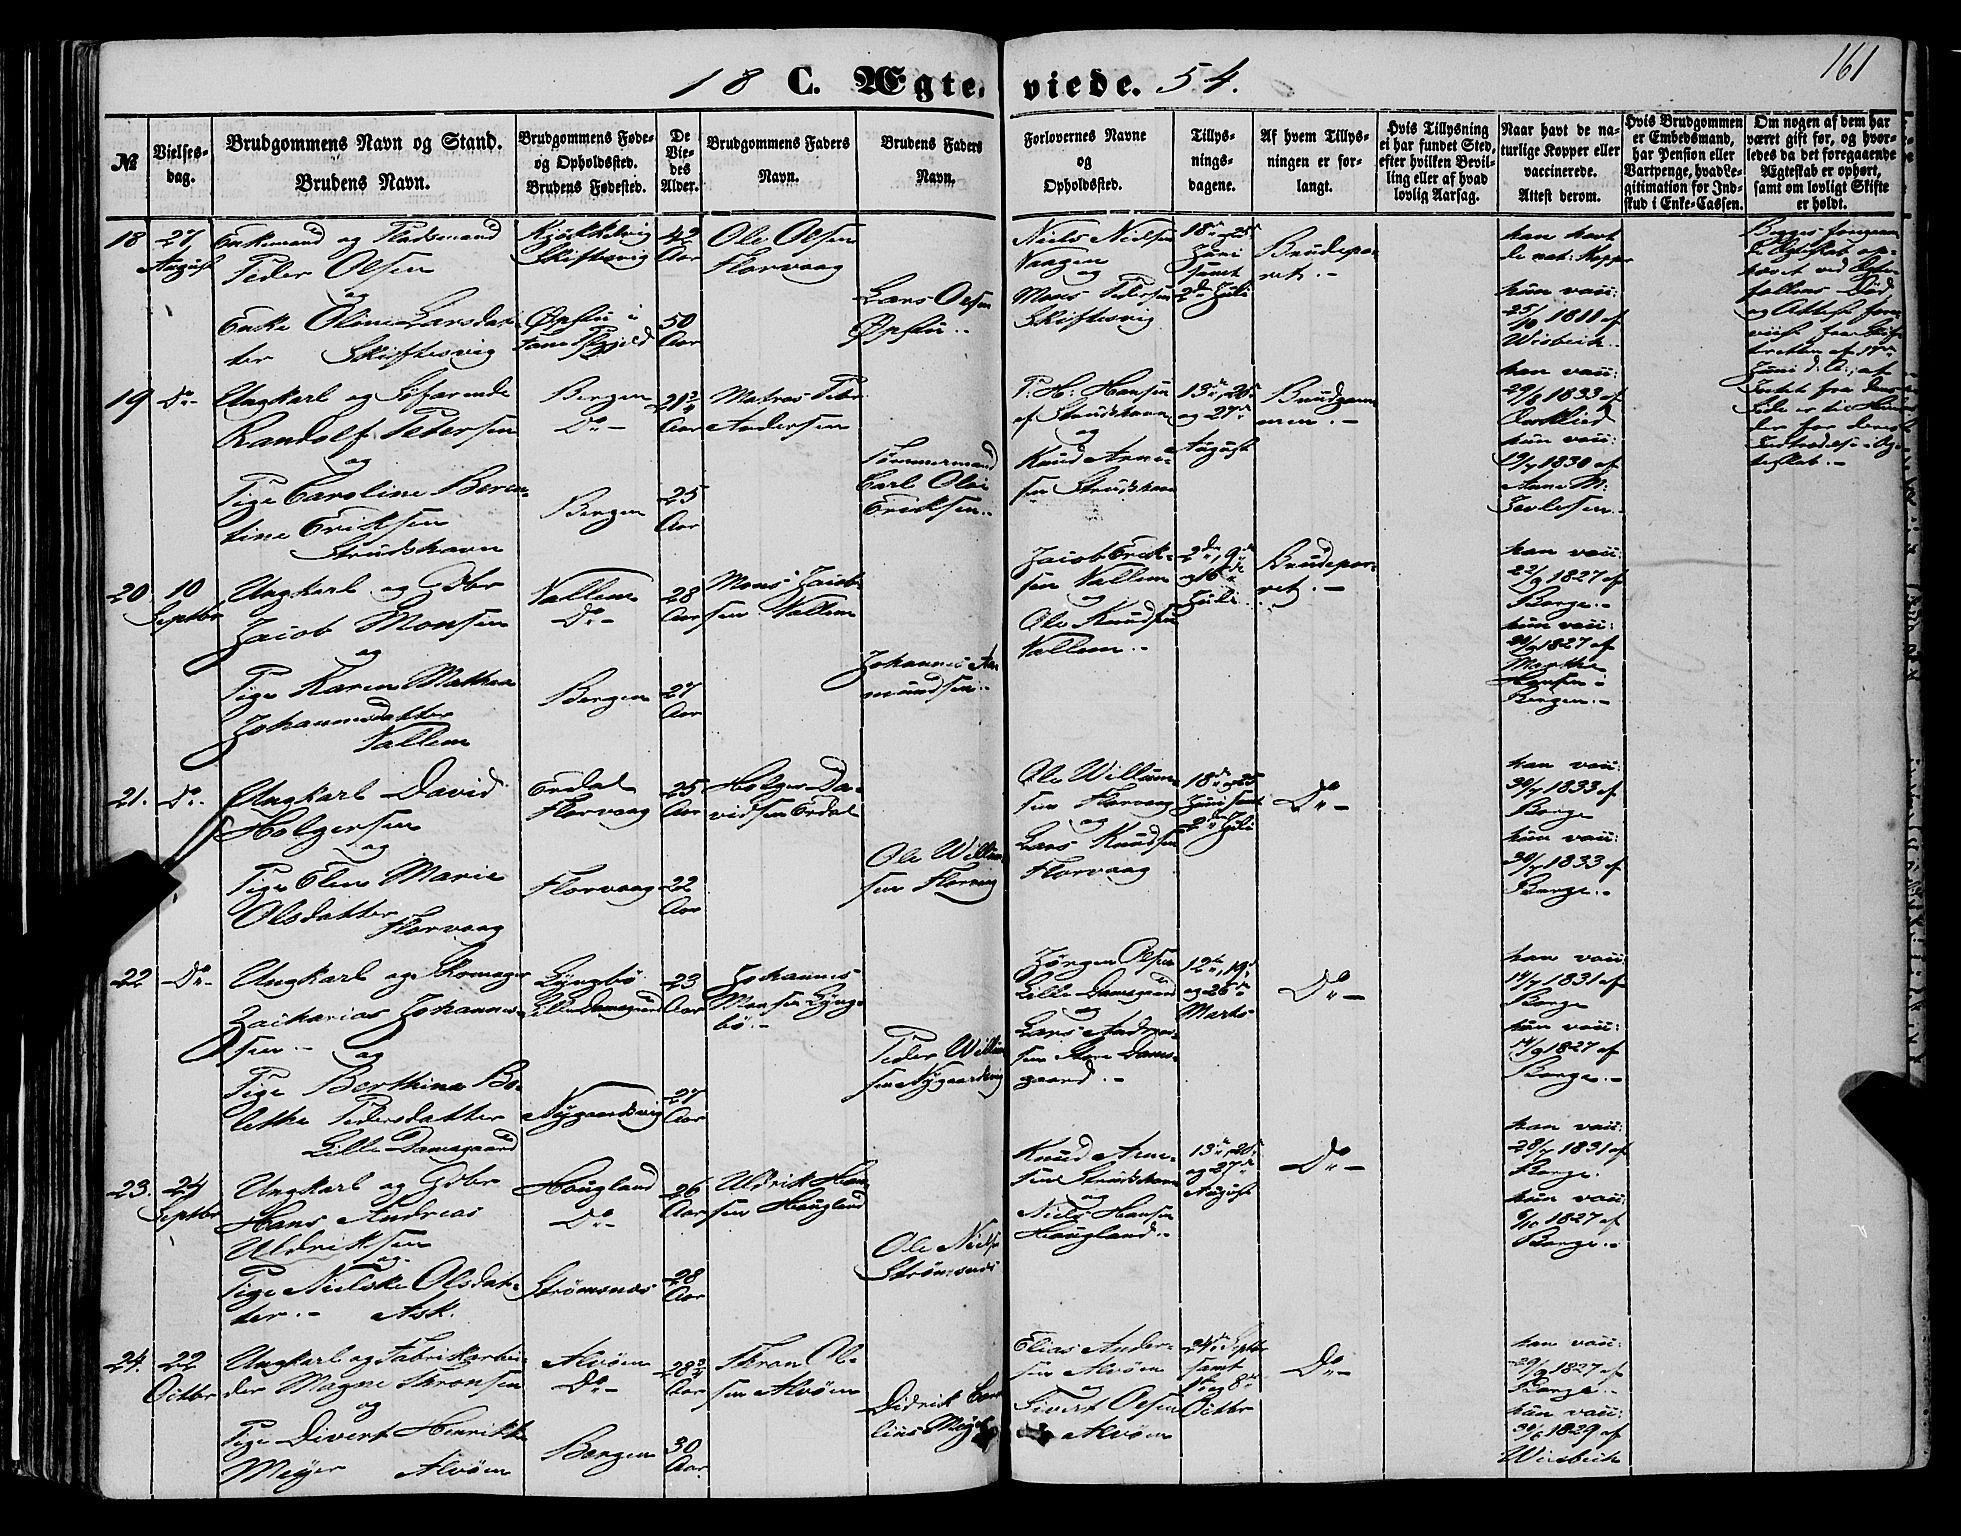 161
18 C. Ægte- viede. 54.
№
Vielses-
dag.
Brudgommens Navn og Stand.
Brudens Navn.
Brudgommens Føde-
og Opholdssted.
Brudens Fødested.
De
Vie-
des
Alder.
Brudgommens Faders
Navn.
Brudens Faders
Navn.
Forlovernes Navne
og
Opholdssted.
Tillys-
nings-
dagene.
Af hvem Tillys-
ningen er for-
langt.
Hvis Tillysning
ei har fundet Sted,
efter hvilken Bevil-
ling eller af hvad
lovlig Aarsag.
Naar havt de na-
turlige Kopper eller
vaccinerede.
Attest derom.
Hvis Brudgommen
er Embedsmand,
har Pension eller
Vartpenge, hvad Le-
gitimation for Ind-
skud i Enke-Cassen.
Om nogen af dem har
været gift før, og hvor-
ledes da det foregaaende
Ægteskab er ophørt,
samt om lovligt Skifte
er holdt.
18
27
August
Enkemand og Pladsmand
Peder Olsen
og
Enke Oline Larsdat-
ter Skiftesvig
Skiftesvig
Øpstu i
42
Aar
50
Aar
Ole Olsen
Florvaag
Lars Olsen
Øpstu
Niels Nielsen
Vaagen
og
Mons Pedersen
Skiftesvig
18de, 25de
Juni
samt
2den Juli
Brudepar-
ret.
han havt
de nat: Kopper
hun vacc:
25/10 1811 af
Wisbech
19
Do
Ungkarl og Søfarende
Randolf Petersen
og
Pige Caroline Beren-
tine Eriksen
Strudshavn
Bergen
Do
Bergen
21 3/4
Aar
25
Aar
Matros Peter
Andersen
Tømmermand
Carl Olai
Ericksen
P. H. Hansen
af Strudshavn
og
Knud Arne-
sen Strudshavn
13de, 20de
og 27de
August
Brudgom-
men.
han vacc:
29/6 1833 af
hun vacc:
19/7 1830 af
Anne M:
20
10
Septbr
Ungkarl og Gdbr
Jacob Monsen
og
Pige Karen Mathea
Johannesdatter
Vallem
Vallem
Do
Bergen
28
Aar
27
Aar
Mons Jacob-
sen Vallem
Johannes Aa-
mundsen
Jacob Erik-
sen Vallem
og
Ole Knudsen
Vallem
2den, 9de
og 16de
Juli
Brudepar-
ret.
han vacc:
22/9 1827 af
Borge
hun vacc:
1827 af
Marthe
Hansen
Bergen
21.
Do
Ungkarl David
Holgersen
og
Pige Elen Marie
Olsdatter
Florvaag
Erdal
Florvaag
Florvaag
25
Aar
22
Aar
Holger Da-
vidsen Erdal
Ole Willum-
sen Florvaag
Ole Willum-
sen Florvaag
og
Lars Knudsen
Florvaag
18de, 25de
Juni samt
2den Juli
Do
han vacc:
30/7 1833 af
Borge
hun vacc:
30/7 1833 af
Borge
22
Do
Ungkarl og Skomager
Zacharias Johannes-
sen
og
Pige Berthina Bo-
lethe Pedersdatter
Lille Damsgaard
Lyngbø
Lille Damsgaard
Nygaardsvig
23
Aar
27
Aar
Johannes
Monsen Lyng-
bø
Peder Willum-
sen Nygaardsvig
Jørgen Olsen
Lille Damsgaard
og
Lars Andrea-
sen Store Dams-
gaard
12te, 19de
og 26de
Marts
Do
han vacc:
14/7 1831 af
Borge
hun vacc:
14/9 1827 af
Borge
23.
24
Septbr
Ungkarl og Gdbr
Hans Andreas
Uldriksen
og
Pige Nielske Olsdat-
ter Ask.
Hougland
Do
Strømsnes
26
Aar
28
Aar
Uldrik Han-
sen Hougland
Ole Nielsen
Strømsnes
Knud Arne-
sen Strudshavn
og
Niels Hansen
Hougland
13de, 20de
og 27de
August
Do
han vacc:
28/7 1831 af
Borge.
hun vacc:
6/10 1827 af
Borge
24.
22
Octbr
Ungkarl og Fabrikarbei-
der Magne Thronsen
og
Pige Divert Henrikke
Meyer Alvøen
Alvøen
Do
Bergen
28 3/4
Aar
30
Aar
Thron Ol-
sen Alvøen
Didrik Cor-
lius Meyer
Elias Ander-
sen Alvøen
og
Sivert Olsen
Alvøen
24de Septbr
samt
1ste og 8de
Octbr
Do
han vacc:
29/9 1827 af
Borge
hun vacc:
30/6 1829 af
Wisbech